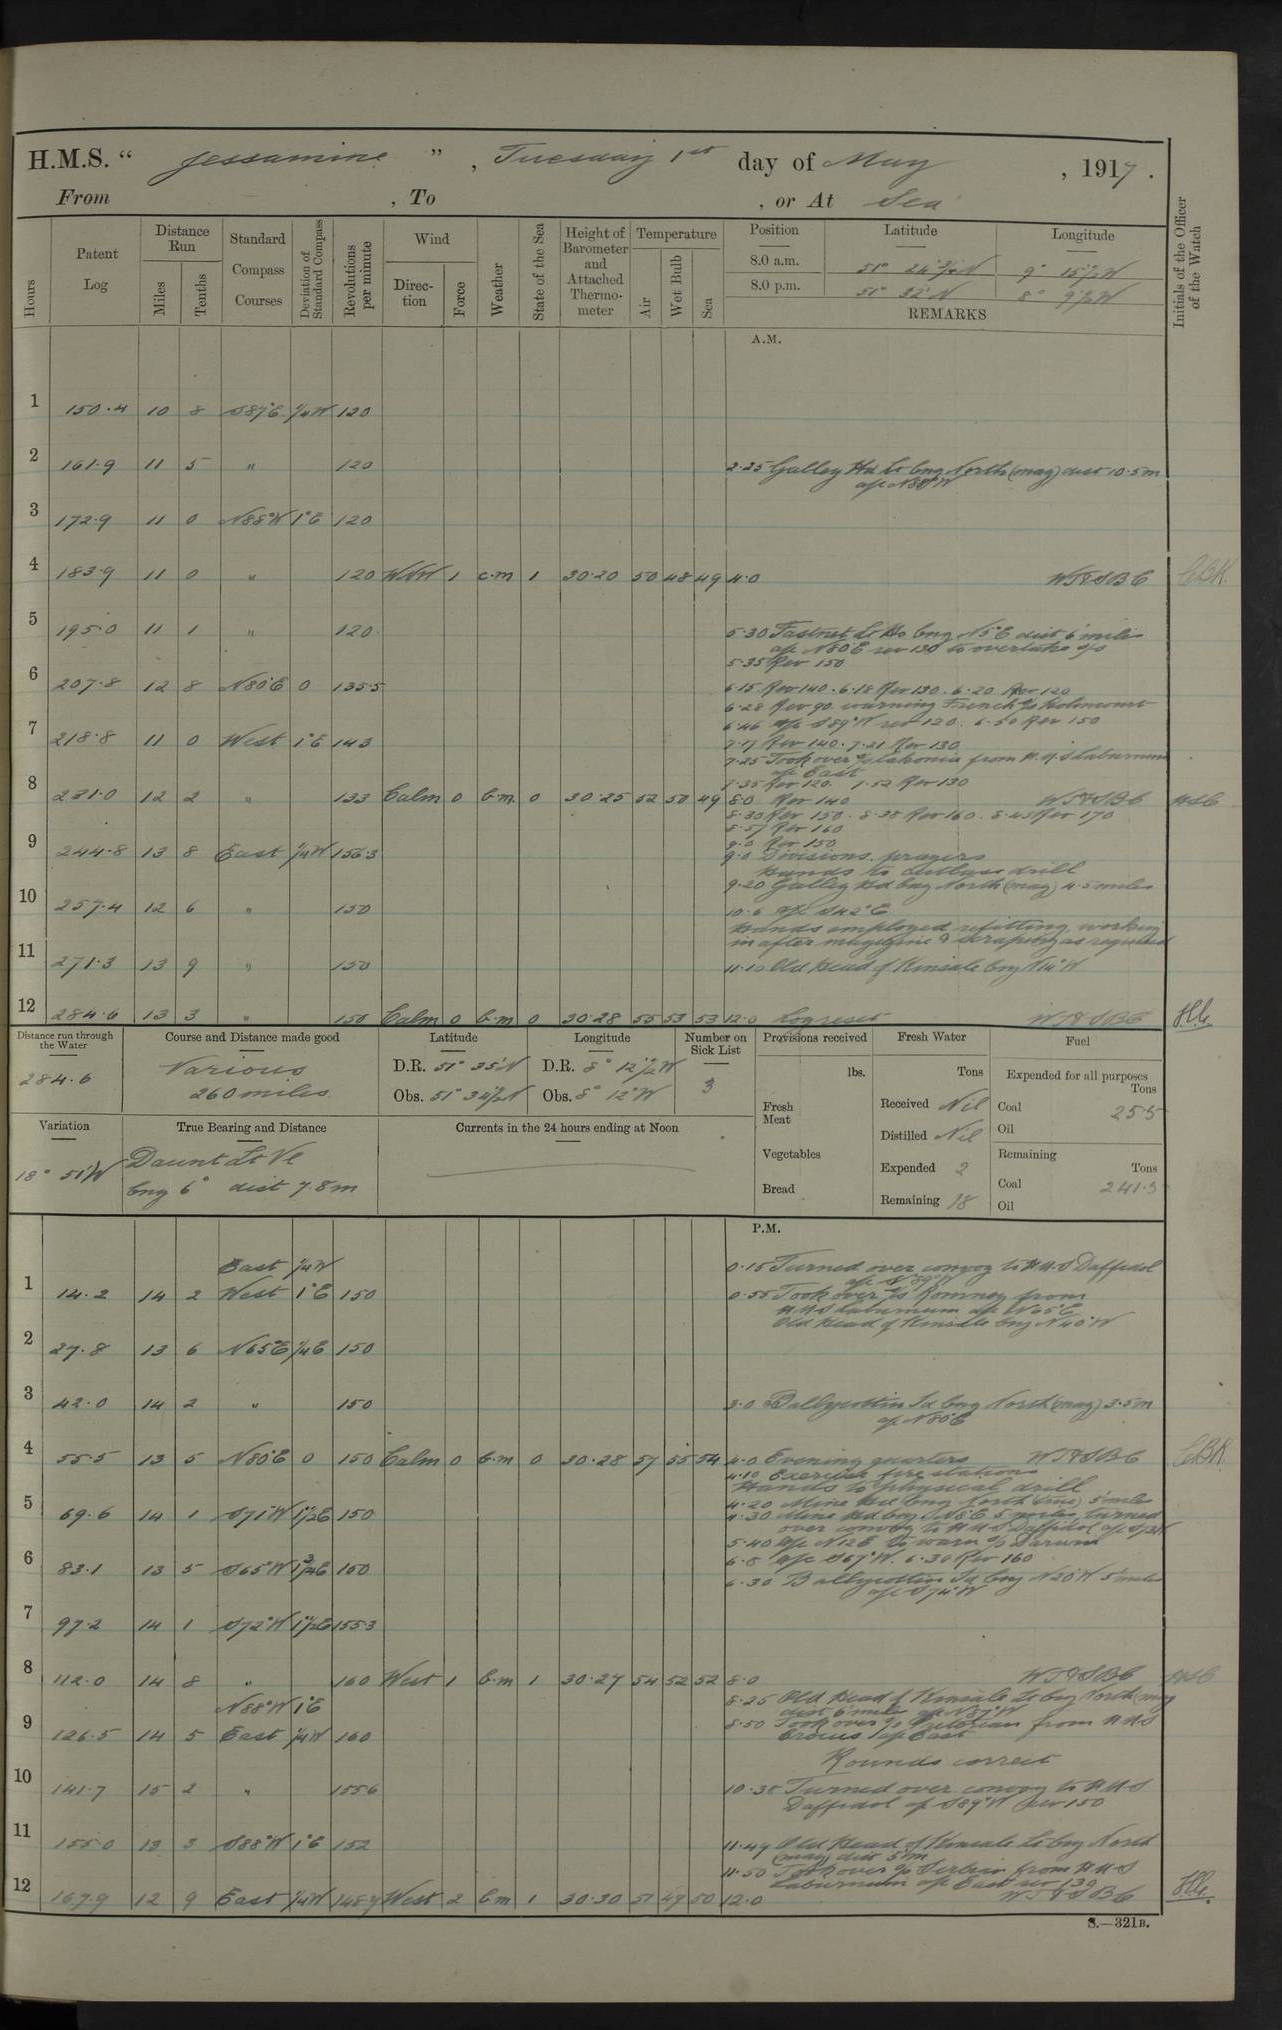 H.M.S. " Jessamine " , Tuesday 1st day of May , 1917 .
From , To , or At Sea
Hours
Patent Log
Distance Run
Miles
Tenths
Standard Compass Courses
Deviation of Standard Compass
Revolutions per minute
Wind
Direction
Force
Weather
State of the Sea
Height of Barometer and Attached Thermometer
Temperature
Air
Wet Bulb
Sea
Position Latitude Longitude
8.0 a.m. 51° 24 1/2' N 9° 15 1/2' W
8.0 p.m. 51° 32' N 8° 9 1/2' W
REMARKS
Initials of the Officer of the Watch
A.M.
1 150.4 10 8 S87°E 1/4W 120
2 161.9 11 5 " 120
2.25 Galley Hd Lt bng North (mag) dist 10.5 m
a/c N88°W
3 172.9 11 0 N88°W 1°E 120
4 183.9 11 0 " 120 WNW 1 c.m 1 30.20 50 48 49 4.0 WT&SBC CBH
5 195.0 11 1 " 120
5.30 Fastnet Lt Ho bng N5°E dist 6 miles
a/c N80E rev 130 to overtake s/s
5.35 Rev 150
6 207.8 12 8 N80°E 0 135.5
6.15 Rev 140. 6.18 Rev 130. 6.20 Rev 120
6.28 Rev 90 warning French s/s
6.46 a/c S89°W rev 120. 6.50 Rev 150
7 218.8 11 0 West 1°E 143
7.17 Rev 140. 7.21 Rev 130
7.25 Took over s/s from H.M.S Laburnum
a/c East
7.35 Rev 120. 7.52 Rev 130
8 231.0 12 2 " 133 Calm 0 b.m 0 30.25 52 50 49 8.0 Rev 140 WT&SBC
8.30 Rev 150. 8.38 Rev 160. 8.45 Rev 170
8.57 Rev 160
9.0 Rev 150
9 244.8 13 8 East 1/4W 156.3
9.0 Divisions. prayers
Hands to cutlass drill
9.20 Galley Hd bng North (mag) 4.5 miles
10 257.4 12 6 " 150
10.6 a/c S42°E
Hands employed refitting, working
in after magazine & scraping as required
11 271.3 13 9 " 150
11.10 Old Head of Kinsale bng N14°W
12 284.6 13 3 " 150 Calm 0 b.m 0 30.28 55 53 53 12.0 Log reset WT&SBC
Distance run through the Water
284.6
Course and Distance made good
Various
260 miles
Latitude
D.R. 51° 35' N
Obs. 51° 34 1/2' N
Longitude
D.R. 8° 12 1/2' W
Obs. 8° 12' W
Number on Sick List
3
Provisions received
lbs.
Fresh Meat
Vegetables
Bread
Fresh Water
Tons
Received Nil
Distilled Nil
Expended 2
Remaining 18
Fuel
Expended for all purposes
Tons
Coal 25.5
Oil
Remaining
Tons
Coal 241.5
Oil
Variation
18° 51' W
True Bearing and Distance
Daunt Lt Ve
bng 6° dist 7.8 m
Currents in the 24 hours ending at Noon
P.M.
East 1/4W
1 14.2 14 2 West 1°E 150
0.15 Turned over convoy to H.M.S Daffodil
a/c S89°W
0.55 Took over s/s Romney from
HMS Laburnum a/c N65°E
Old Head of Kinsale bng N40°W
2 27.8 13 6 N65°E 1/4E 150
3 42.0 14 2 " 150
3.0 Ballycottin Id bng North (mag) 3.5 m
a/c N80°E
4 55.5 13 5 N80°E 0 150 Calm 0 b.m 0 30.28 57 55 54 4.0 Evening quarters WT&SBC CBH
4.10 Exercise fire stations
Hands to physical drill
5 69.6 14 1 S71°W 1 1/2E 150
4.20 Mine Hd bng North (true) 5 miles
4.30 Mine Hd bng N8°E 5 miles, turned
over convoy to H.M.S Daffodil
5.40 a/c N12E to warn s/s Darwin
6 83.1 13 5 S65°W 1 3/4E 150
6.8 a/c S67°W. 6.30 Rev 160
6.30 Ballycottin Id bng N20°W 5 miles
a/c S74°W
7 97.2 14 1 S72°W 1 1/2E 155.3
8 112.0 14 8 " 160 West 1 b.m 1 30.27 54 52 52 8.0 WT&SBC
N88°W 1°E
8.25 Old Head of Kinsale Lt bng North (mag
dist 6 miles a/c N87°W
9 126.5 14 5 East 1/4W 160
8.50 Took over s/s Pretorian from HMS
Crocus a/c East
Rounds correct
10 141.7 15 2 " 155.6
10.38 Turned over convoy to H.M.S
Daffodil a/c S89°W rev 150
11 155.0 13 3 S88°W 1°E 152
11.49 Old Head of Kinsale Lt bng North
(mag) dist 5 m
11.50 Took over s/s Serbian from H.M.S
Laburnum a/c East rev 130
12 167.9 12 9 East 1/4W 148.7 West 2 b.m 1 30.30 51 49 50 12.0 WT&SBC
S.—321B.